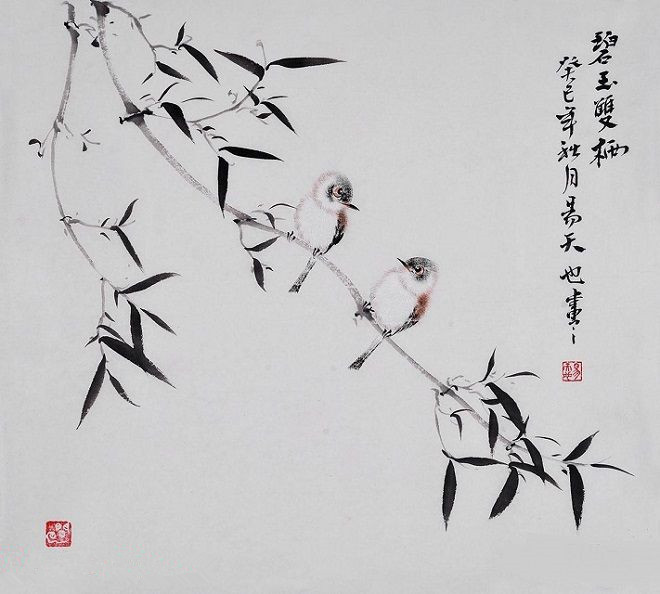 碧玉雙栖
癸巳年秋月易天也畫之